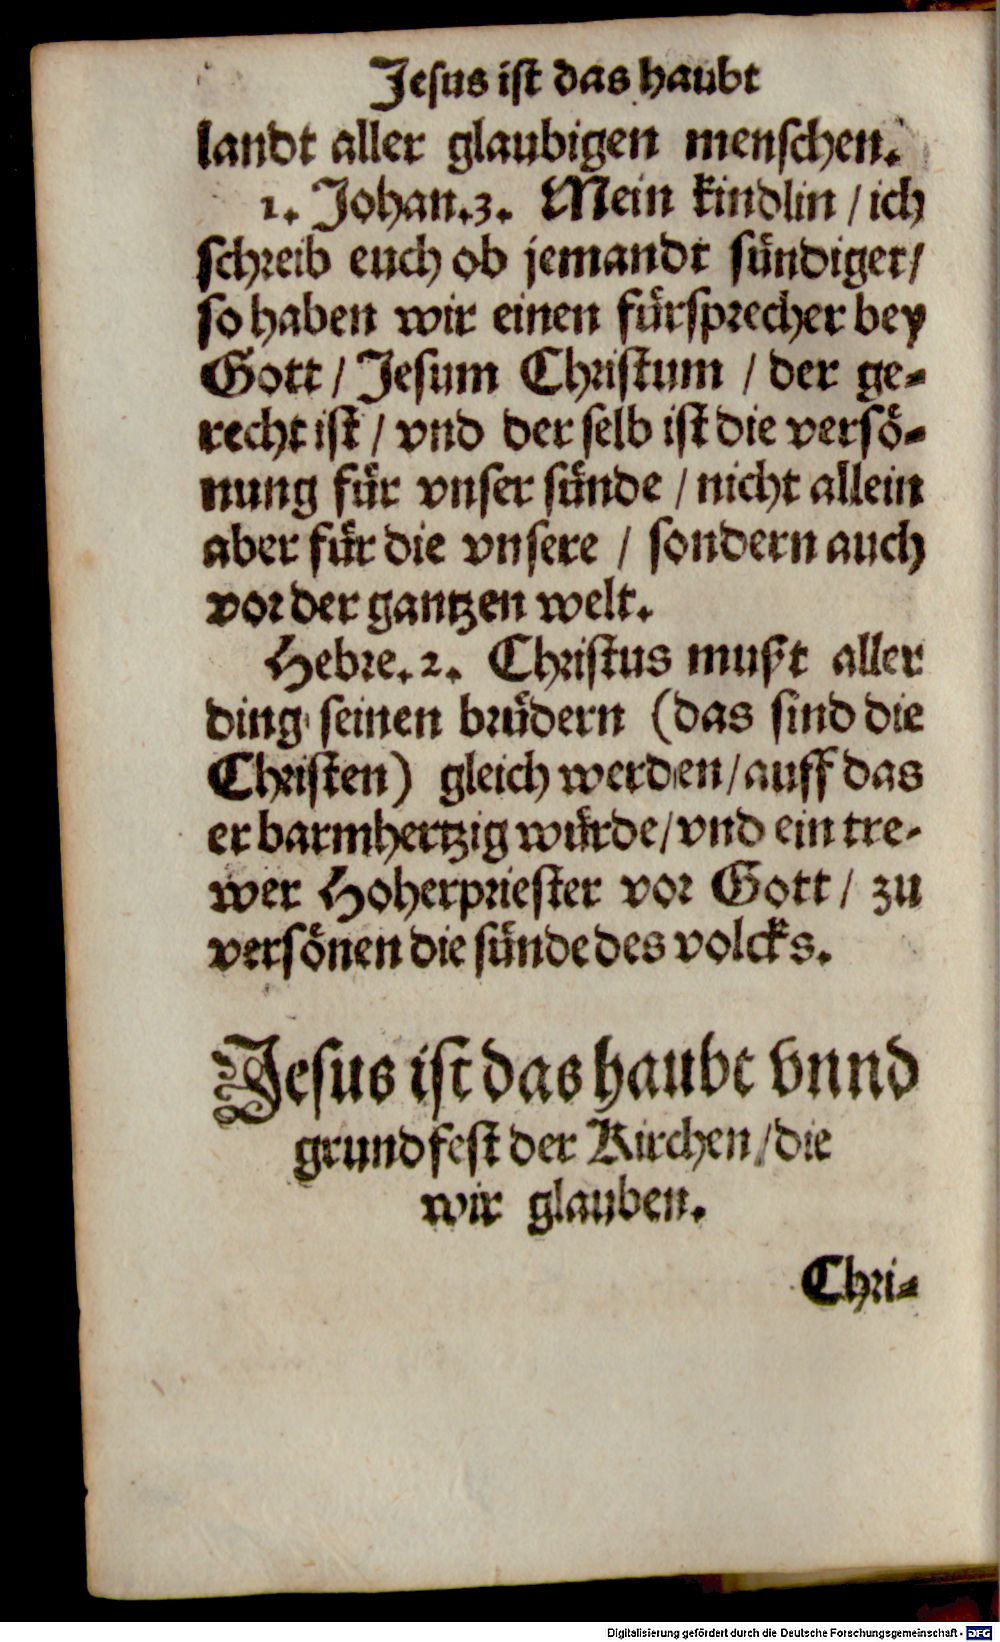 Jesus ist das haubt
landt aller glaubigen menschen.
1. Johan. 3. Mein kindlin / ich
schreib euch ob jemandt sündiget /
so haben wir einen fürsprecher bey
Gott / Jesum Christum / der ge-
recht ist / vnd der selb ist die versö-
nung für vnser sünde / nicht allein
aber für die vnsere / sondern auch
vor der gantzen welt.
Hebre. 2. Christus mußt aller
ding seinen brüdern (das sind die
Christen) gleich werden / auff das
er barmhertzig würde / vnd ein tre-
wer Hoherpriester vor Gott / zu
versönen die sünde des volcks.
Jesus ist das haubt vnnd
grundfest der Kirchen / die
wir glauben.
Chri-
Digitalisierung gefördert durch die Deutsche Forschungsgemeinschaft - DFG